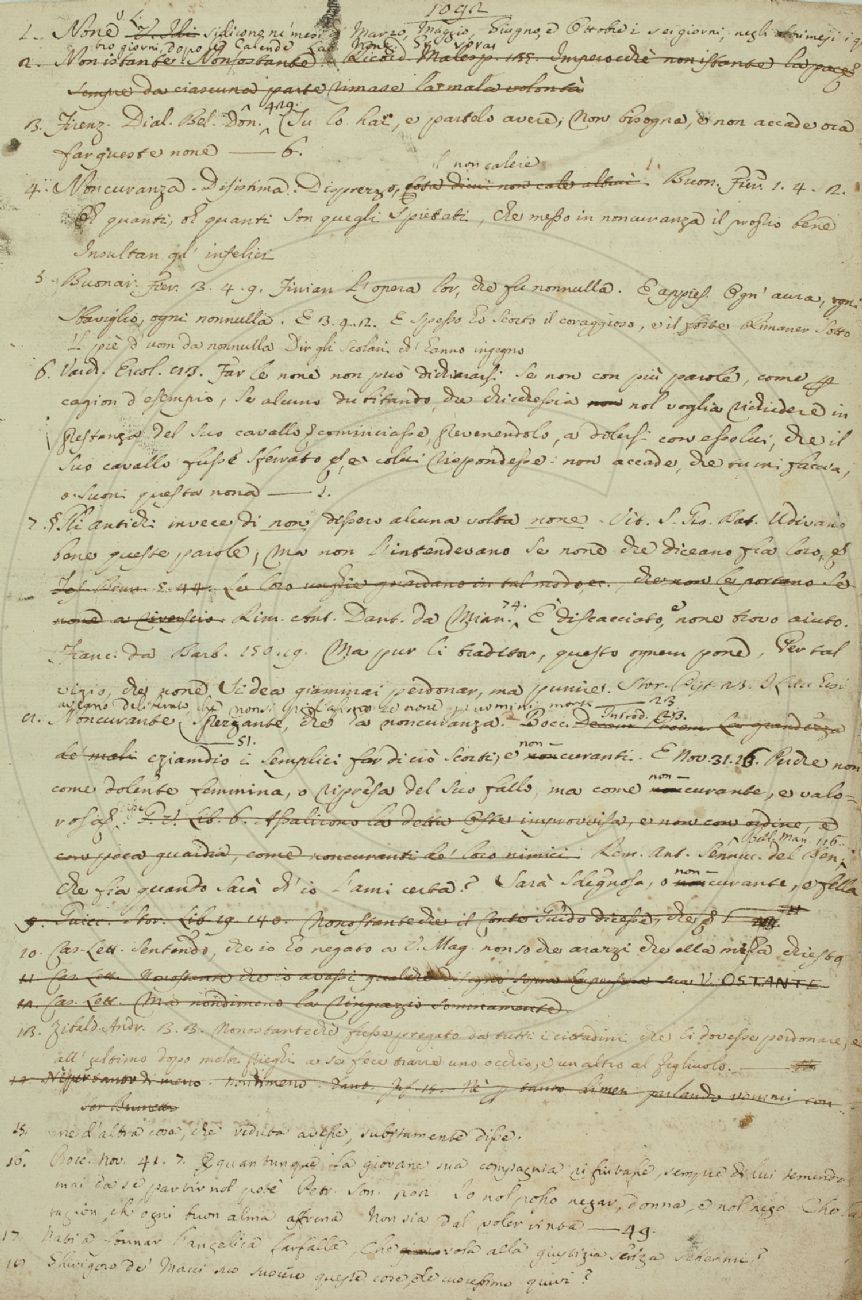 1092
1. None Gli Mi si dicono ne' mesi di Marzo, Maggio, Giugno, e Ottobre i sei giorni, negli altri mesi i q
tro giorni dopo le Calende. Lat. Nonae.
2. Non istante. Nonostante. Ricord. Malesp. 155. Imperocchè non istante la pace
sempre da ciascuna parte rimase la mala volontà
3. Firenz. Dial. Bel. Don. 429. Tu lo hai, e parcelo avere, non bisogna, e non accade ora
far queste none — 6.
il non calere
4. Noncuranza. Disistima. Disprezzo, Buon. Fier. 1. 4. 12.
Oh quanti, oh quanti son quegli spietati, che messo in noncuranza il proprio bene
Insultan gl' infelici
5. Buonar. Fier. 3. 4. 9. Finian l'opera lor, che fu nonnulla. E appress. Ogn' aura, ogni
sbaviglio, ogni nonnulla. E 3. 4. 12. E spesso ho scorto il coraggioso, e il forte rimaner sotto
Il piè d' uom da nonnulla Dir gli scolari ch' hanno ingegno
6. Varch. Ercol. 93. Far le none non può dichiararsi se non con più parole, come
cagion d'esempio, se alcuno dubitando, che chicchessia non nol voglia richiedere in
prestanza del suo cavallo, cominciasse, prevenendolo, a dolersi con esso lui, che il
suo cavallo fusse sferrato, e colui rispondesse: non accade, che tu mi faccia,
o suoni questa nona — 1.
7. §. Gli antichi invece di non dissero alcuna volta none. Vit. S. Gio. Bat. Udivano
bene queste parole, ma non l'intendevano se none che diceano fra loro,
Tes. Brun. 5. 44. Le loro unghie guardano in tal modo, ec. che non le portano se
none a riverscio. Rim. Ant. Dant. da Maian. 74. E' discacciato, e none trovo aiuto.
Franc. da Barb. 150. 19. Ma pur li traditor, questo ognun pone, Per tal
vizio, che none Si dea giammai perdonar, ma punire. Stor. Pist. 23.
— 23
Noncurante. Sprezzante, che ha noncuranza. Bocc. Introd. La grandezza
de' mali eziandio i semplici far di ciò scorti, e non curanti. — 51. E Nov. 31. 26. Perchè non
come dolente femmina, o ripresa del suo fallo, ma come non curante, e valo=
rosa. G. V. Lib. 6. Assalirono la detta oste improvvisa, e non con ordine, e
con poca guardia, come noncuranti de' loro nimici. Rim. Ant. Sennuc. del Ben.
che fia quando saià ch' io l'ami certa? Sarà sdegnosa, o noncurante, o fella
9. Guicc. Stor. Lib. 19. 140. Nonostantechè il Conte Guido dicesse, che
10. Car. Lett. Sentendo, che io ho negato a V. Mag. non so che arazzi che ella mi ha chiesto
11. Car. Lett. Nonostante che io avessi qualche disegno sopra la persona sua V. OSTANTE
12. Car. Lett. Ma nondimeno la ringrazio sommamente.
13. Zibald. Andr. 3. 3. Nonostantechè fusse pregato da tutti i cittadini che li dovesse perdonare, e
all' ultimo dopo molti prieghi a se fece trarre uno occhio, e un altro al figliuolo.
nondimeno. Dant. Inf. 15. Nè per tanto di men parlando vommi con
ser Brunetto
15. che d'altra cosa, che veduta avesse, subitamente disse.
16. Bocc. Nov. 41. 7. E quantunque la giovane sua compagnia rifiutasse, sempre di lui temendo,
mai da se partir nol potè Petr. Son. Io nol posso negar, donna, e nol nego Che la
ragion, ch' ogni buon alma affrena Non sia dal voler vinta — 49.
17. l'angelica farfalla, Che vola alla giustizia senza schermi?
18. queste cose quivi?